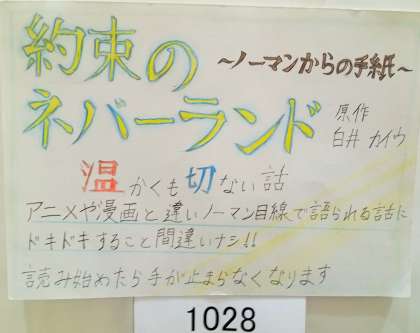 約束の
～ノーマンからの手紙～
ネバーランド
原作
白井 カイウ
温かくも切ない話
アニメや漫画と違いノーマン目線で語られる話に
ドキドキすること間違いナシ!!
読み始めたら手が止まらなくなります
1028